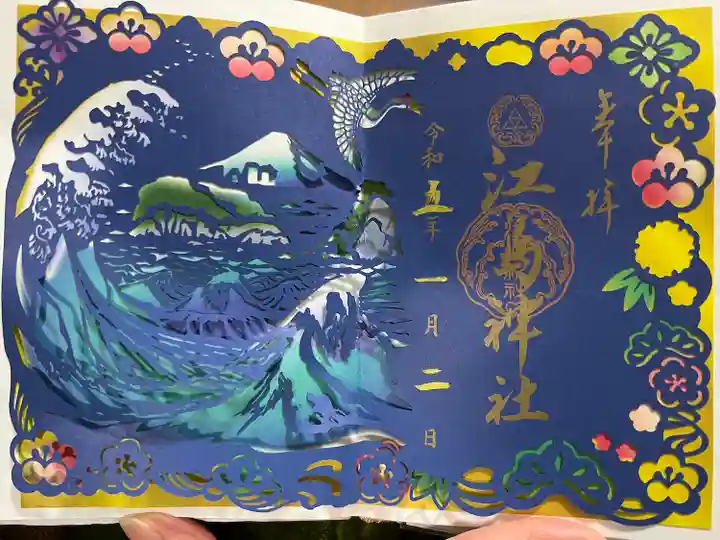 奉拝
江島神社
令和五年
一月二日